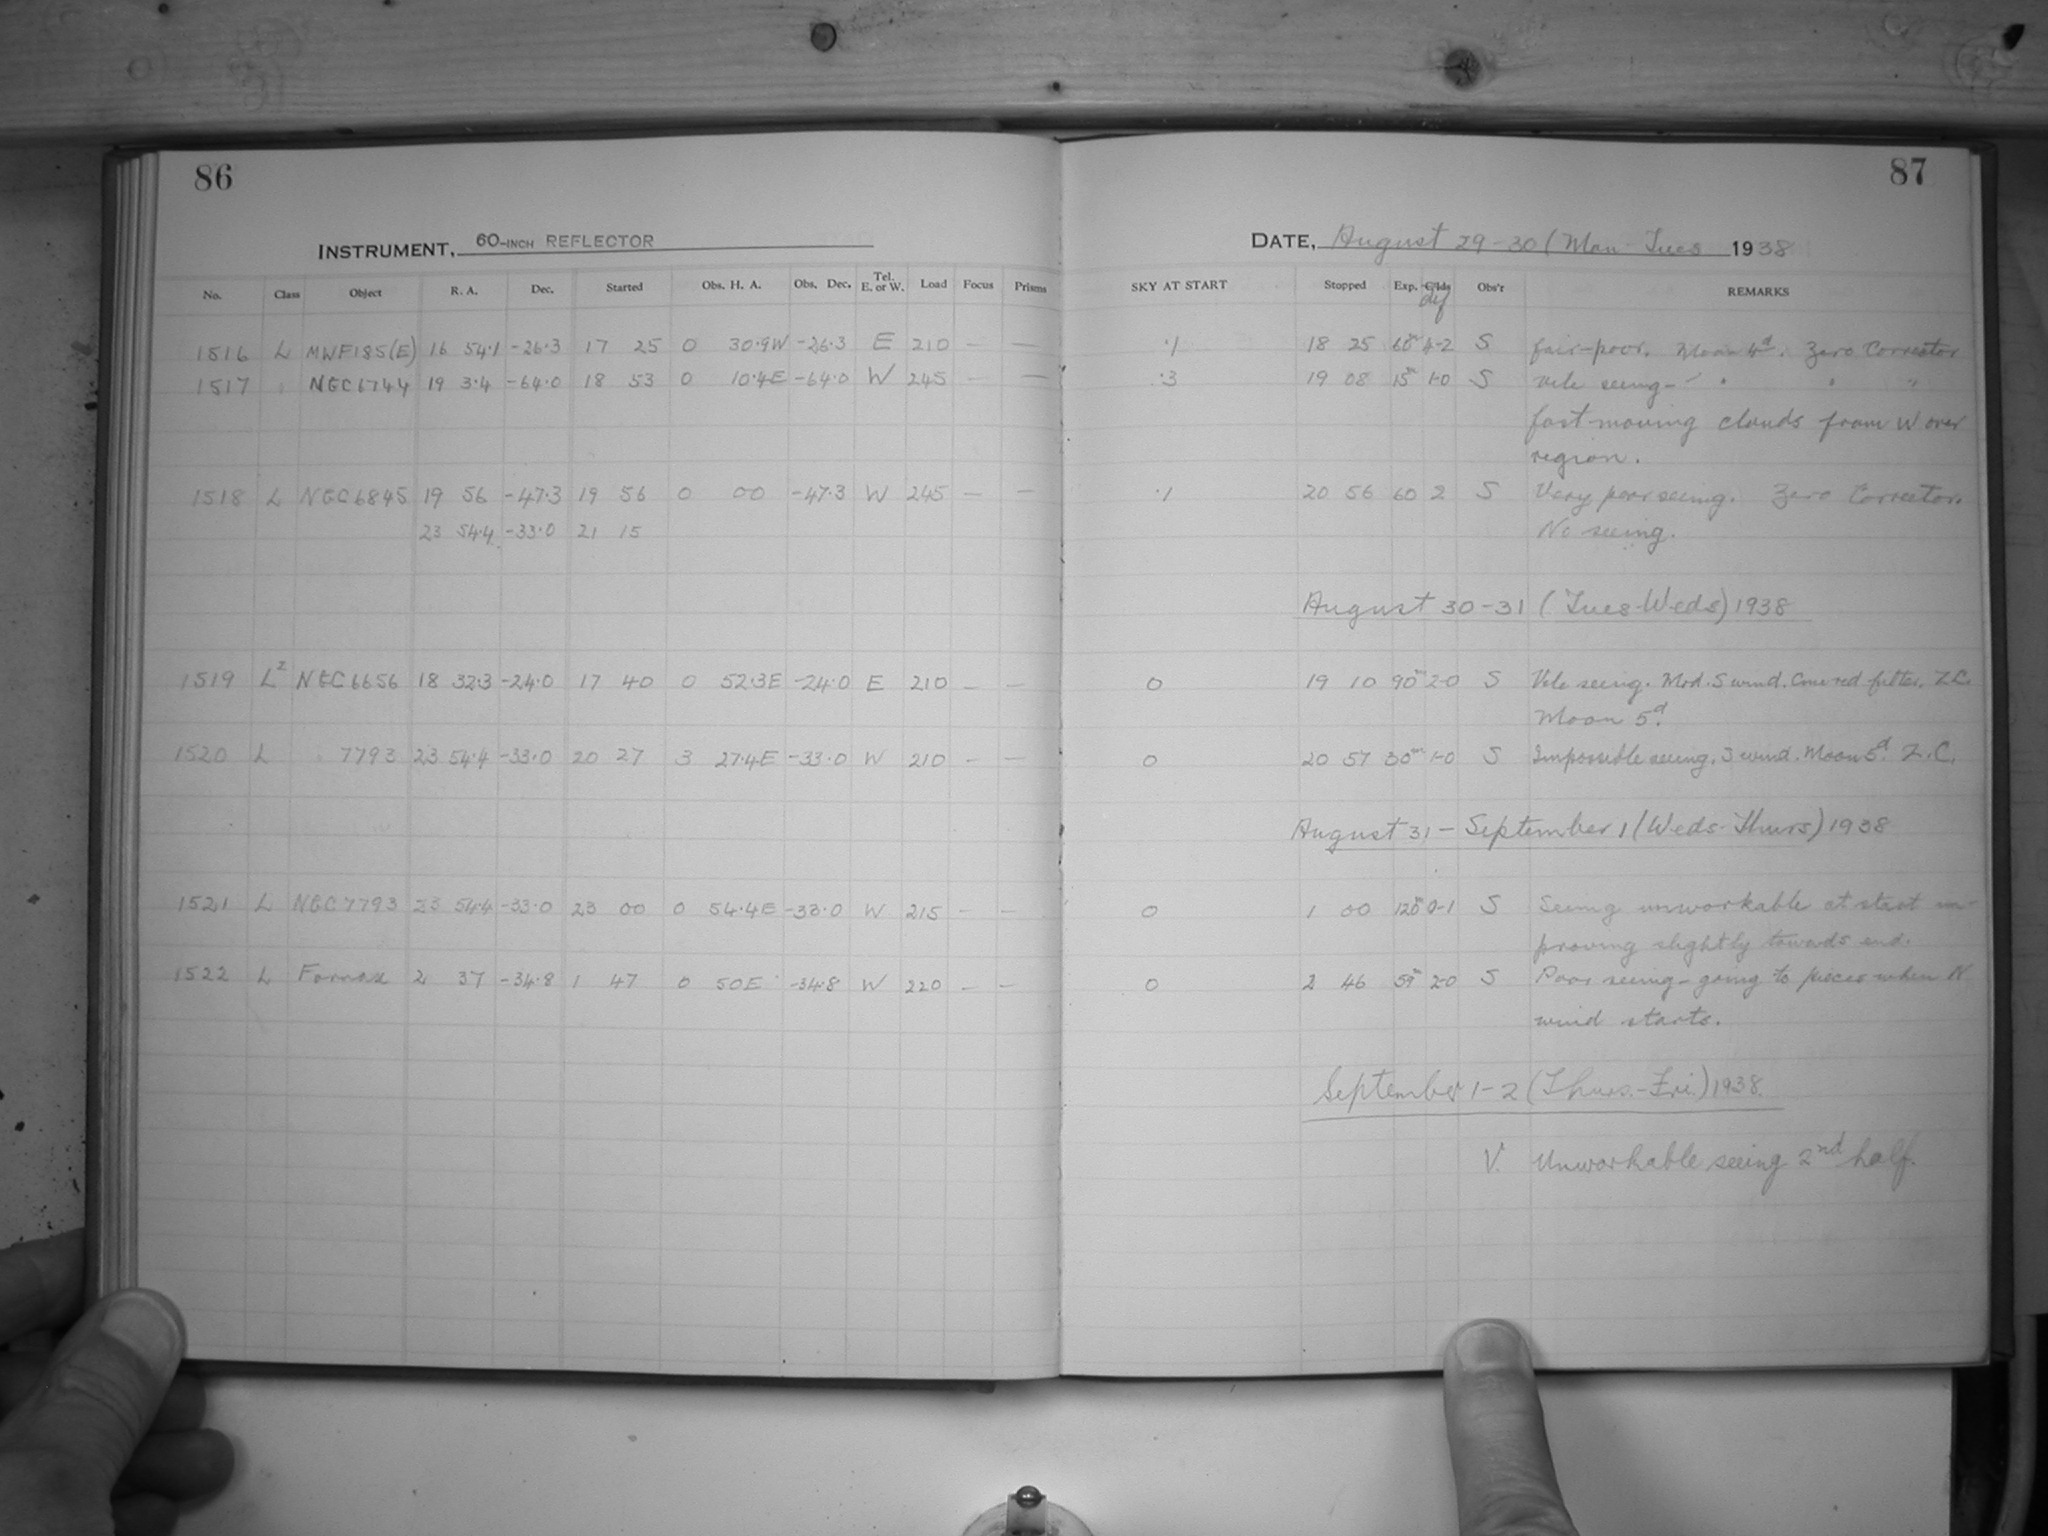 86
87
INSTRUMENT, 60-INCH REFLECTOR
DATE, August 29-30 (Mon-Tues 1938
No. Class Object R. A. Dec. Started Obs. H. A. Obs. Dec. Tel. E. or W. Load Focus Prisms SKY AT START Stopped Exp. dif Obs'r REMARKS
1516 L MWF185(E) 16 54.1 -26.3 17 25 0 30.9W -26.3 E 210 — — .1 18 25 60m 1-2 S fair-poor. Moon 4d. Zero Corrector
1517 " NGC6744 19 3.4 -64.0 18 53 0 10.4E -64.0 W 245 — — .3 19 08 15m 1-0 S Vile seeing - " " "
fast moving clouds from W over
region.
1518 L NGC6845 19 56 -47.3 19 56 0 00 -47.3 W 245 — — .1 20 56 60 2 S Very poor seeing. Zero Corrector.
23 54.4 -33.0 21 15 No seeing.
August 30-31 (Tues-Weds) 1938
1519 L2 NGC6656 18 32.3 -24.0 17 40 0 52.3E -24.0 E 210 — — 0 19 10 90m 2-0 S Vile seeing. Mod. S wind. Cine red filter. Z.C.
Moon 5d.
1520 L " 7793 23 54.4 -33.0 20 27 3 27.4E -33.0 W 210 — — 0 20 57 30m 1-0 S Impossible seeing. S wind. Moon 5d. Z.C.
August 31 - September 1 (Weds-Thurs) 1938
1521 L NGC7793 23 54.4 -33.0 23 00 0 54.4E -33.0 W 215 — — 0 1 00 120m 0-1 S Seeing unworkable at start im-
proving slightly towards end.
1522 L Fornax 2 37 -34.8 1 47 0 50E -34.8 W 220 — — 0 2 46 59m 2-0 S Poor seeing - going to pieces when N
wind starts.
September 1-2 (Thurs.-Fri.) 1938.
V. Unworkable seeing 2nd half.